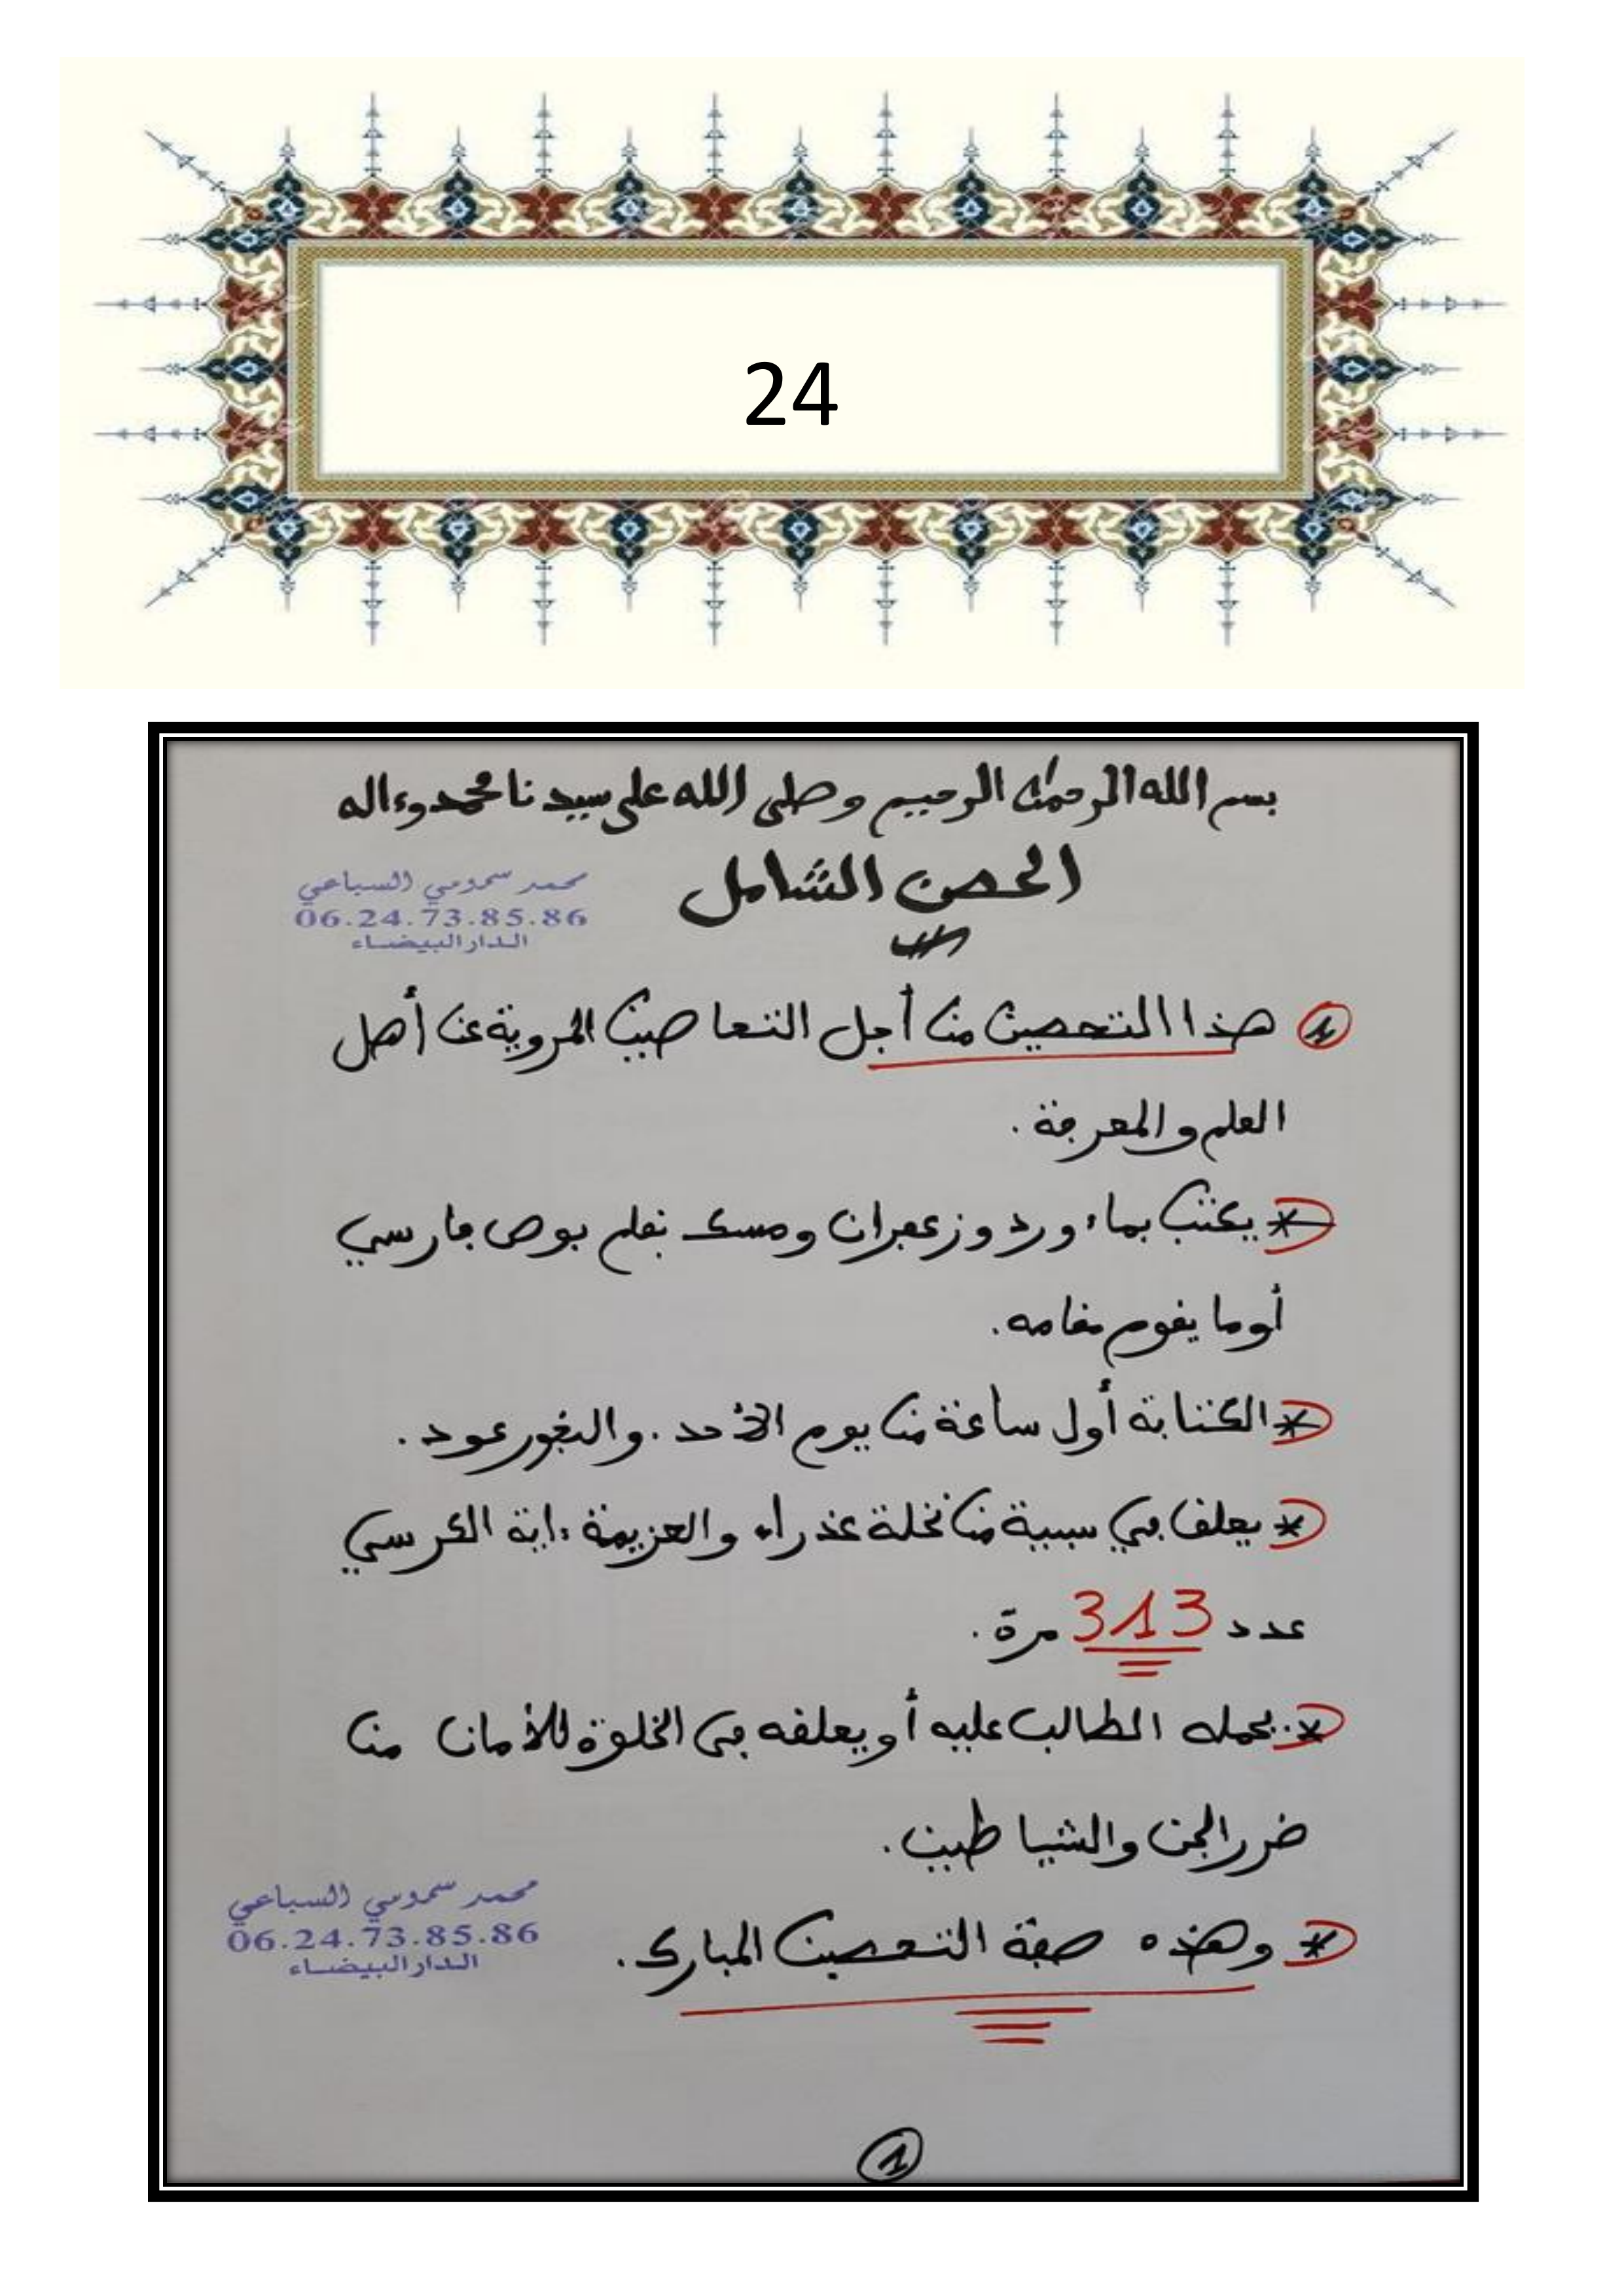 24
بسم الله الرحمن الرحيم وصلى الله على سيدنا محمد وءاله
الحصن الشامل
محمد سمومي السباعي
06.24.73.85.86
الدار البيضاء
1 هذا التحصين من أجل التحاصين المروية عن أهل
العلم والمعرفة .
* يكتب بماء ورد وزعفران ومسك بقلم بوص فارسي
أو ما يقوم مقامه.
* الكتابة أول ساعة من يوم الأحد . والبخور عود .
* يعلق في سبيبة من نخلة عذراء والعزيمة ءاية الكرسي
عدد 313 مرة .
* يحمله الطالب عليه أو يعلقه في الخلوة للأمان من
ضرر الجن والشياطين .
* وهذه صفة التحصين المبارك .
محمد سمومي السباعي
06.24.73.85.86
الدار البيضاء
1